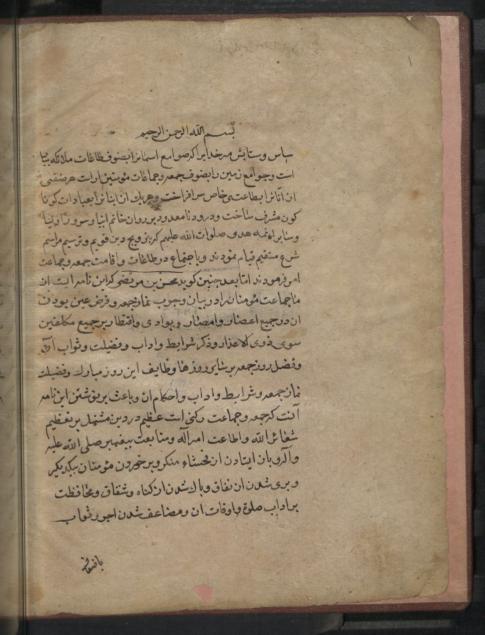 بسم الله الرحمن الرحیم
سپاس و ستایش مر خدایرا که صوامع اسمانرا بصنوف طاعات ملائکه بیا
است و جوامع زمین را بصفوف جمعه و جماعات مؤمنین اراست هر صنفی
از آنانرا بطاعتی خاص سرافراخت و هر یک از اینانرا بعبادات کونا
کون مشرف ساخت و درود نامعدود بر روان خاتم انبیا و سرور
و سایر ائمه هدی صلوات الله علیهم که بترویج دین قویم و ترسیم مراسم
شرع مستقیم قیام نمودند و باجتماع در طاعات و اقامت جمعه و جماعت
امر فرمودند اما بعد چنین کوید محسن بن مرتضی که این نامه ایست از
ما جماعت مؤمنان را در بیان وجوب نماز جمعه و فرض عین بودن
ان در جمیع اعصار و امصار و بوادی و اقطار بر جمیع مکلفین
سوی ذوی الاعذار و ذکر شرایط و اداب و فضیلت و ثواب آن
و فضل روز جمعه بر سایر روزها و وظایف این روز مبارک و فضیلت
نماز جمعه و شرایط و اداب و احکام ان و باعث بر نوشتن این نامه
آنست که جمعه و جماعت رکنی است عظیم در دین مشتمل بر تعظیم
شعائر الله و اطاعت امر اله و متابعت پیغمبر صلی الله علیه
و آله و باز ایستادن از فحشاء و منکر و برخوردن مؤمنان بیکدیکر
و بری شدن از نفاق و پاک شدن از کناه و شقاق و محافظت
بر اداب صلوة و اوقات ان و مضاعف شدن اجور و ثواب